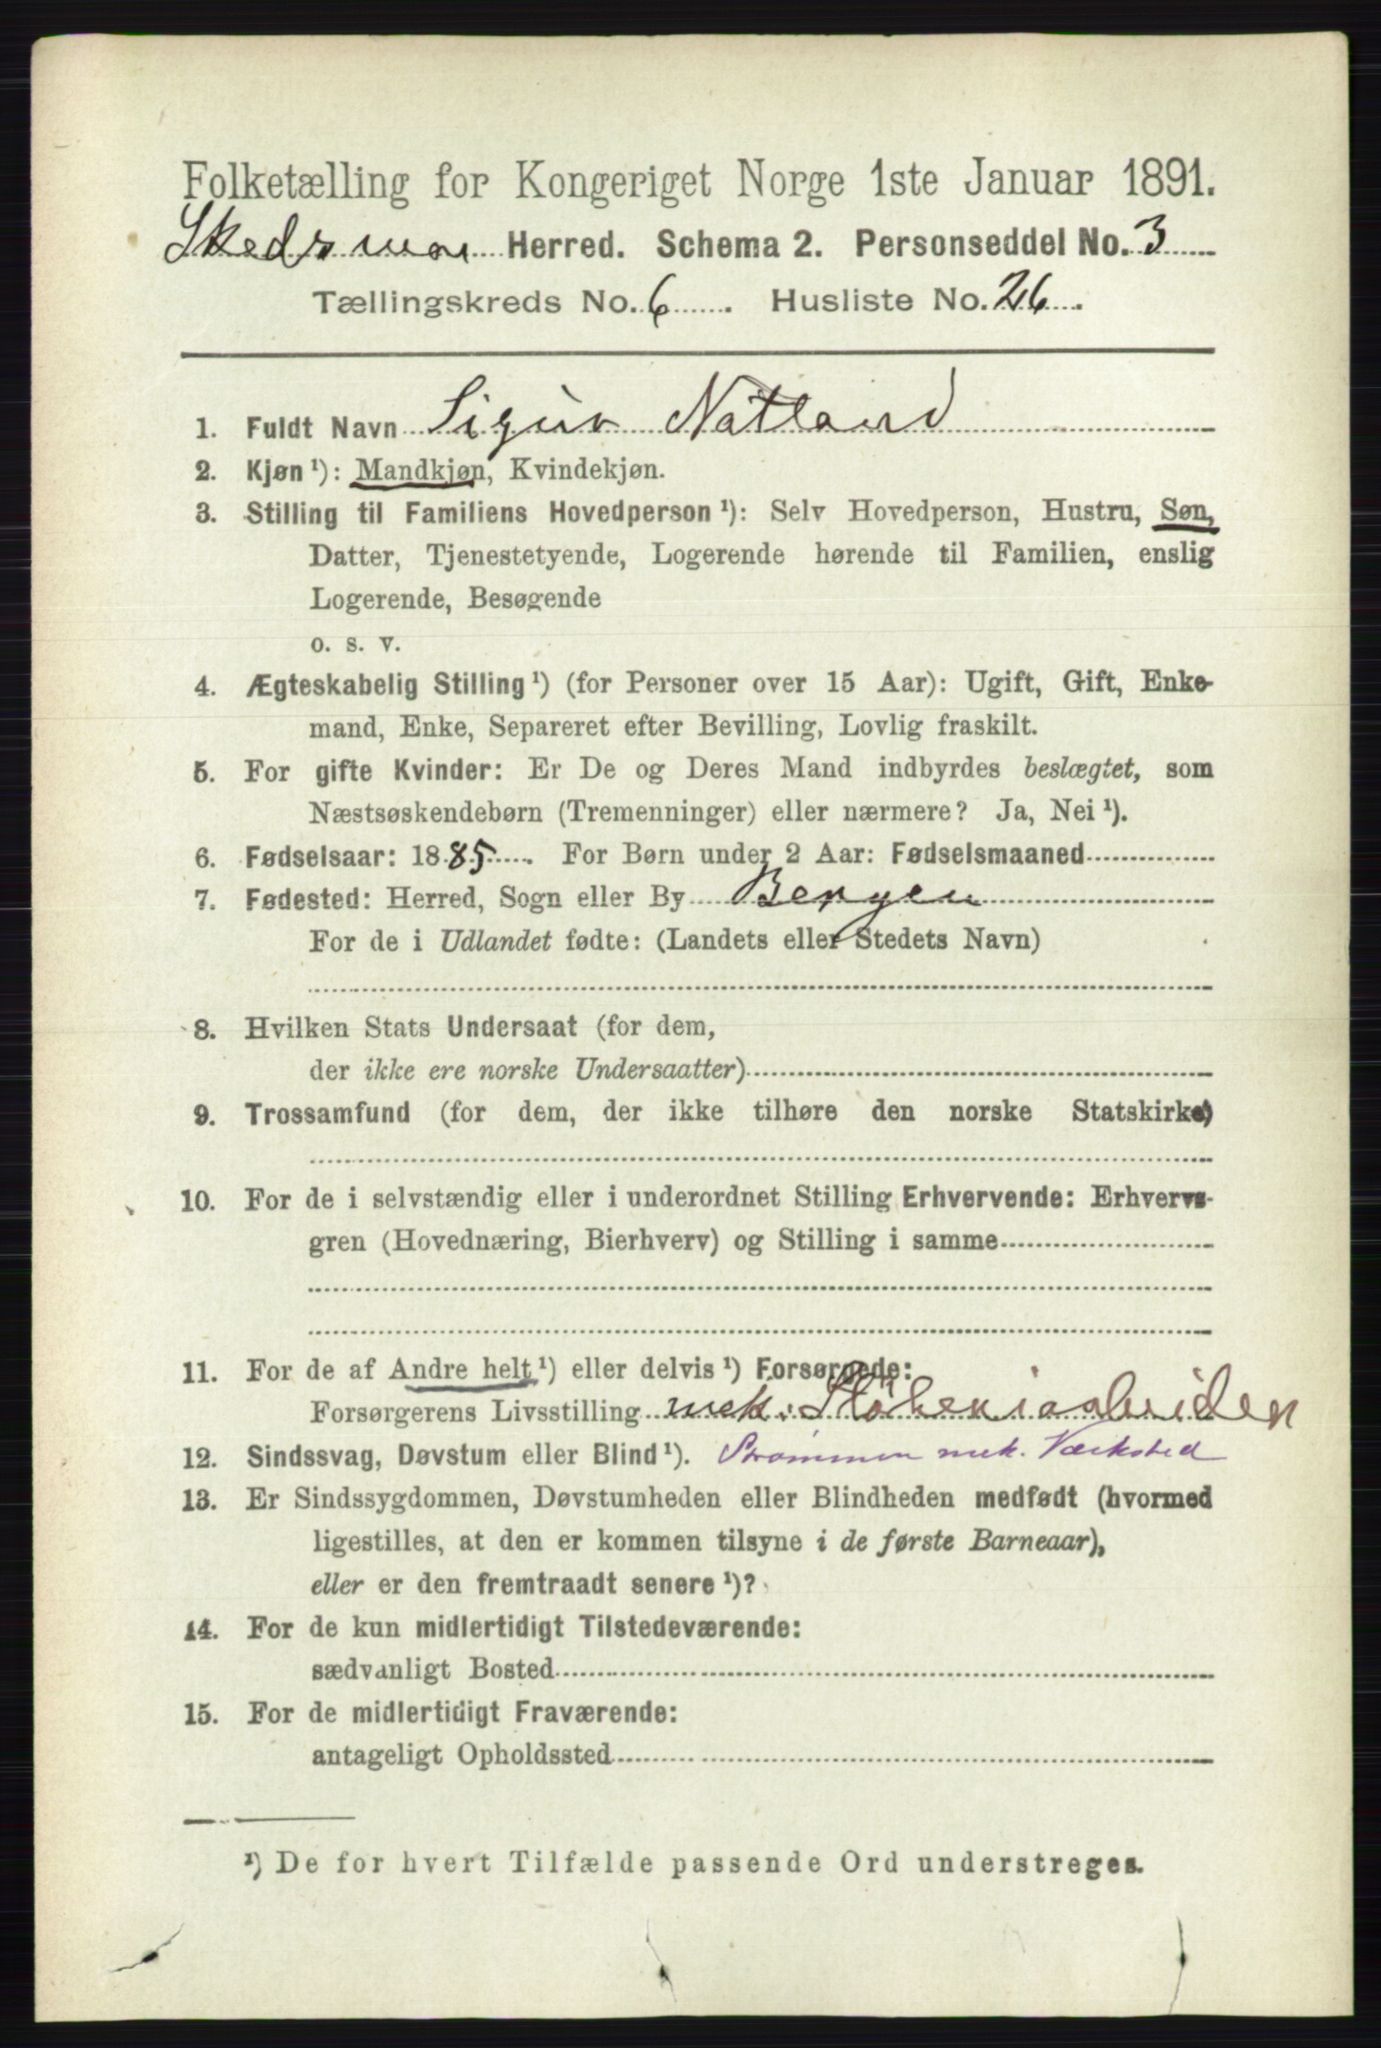 Folketælling for Kongeriget Norge 1ste Januar 1891.
Skedsmo Herred. Schema 2. Personseddel No. 3
Tællingskreds No. 6. Husliste No. 26.
1. Fuldt Navn Sigur Natland
2. Kjøn ¹): Mandkjøn, Kvindekjøn.
3. Stilling til Familiens Hovedperson ¹): Selv Hovedperson, Hustru, Søn,
Datter, Tjenestetyende, Logerende hørende til Familien, enslig
Logerende, Besøgende
o. s. v.
4. Ægteskabelig Stilling ¹) (for Personer over 15 Aar): Ugift, Gift, Enke-
mand, Enke, Separeret efter Bevilling, Lovlig fraskilt.
5. For gifte Kvinder: Er De og Deres Mand indbyrdes beslægtet, som
Næstsøskendebørn (Tremenninger) eller nærmere? Ja, Nei ¹).
6. Fødselsaar: 1885. For Børn under 2 Aar: Fødselsmaaned
7. Fødested: Herred, Sogn eller By Bergen
For de i Udlandet fødte: (Landets eller Stedets Navn)
8. Hvilken Stats Undersaat (for dem,
der ikke ere norske Undersaatter)
9. Trossamfund (for dem, der ikke tilhøre den norske Statskirke)
10. For de i selvstændig eller i underordnet Stilling Erhvervende: Erhvervs-
gren (Hovednæring, Bierhverv) og Stilling i samme
11. For de af Andre helt ¹) eller delvis ¹) Forsørgede:
Forsørgerens Livsstilling mek.
12. Sindssvag, Døvstum eller Blind ¹). Strømmen mek. Værksted
13. Er Sindssygdommen, Døvstumheden eller Blindheden medfødt (hvormed
ligestilles, at den er kommen tilsyne i de første Barneaar),
eller er den fremtraadt senere ¹)?
14. For de kun midlertidigt Tilstedeværende:
sædvanligt Bosted
15. For de midlertidigt Fraværende:
antageligt Opholdssted
¹) De for hvert Tilfælde passende Ord understreges.